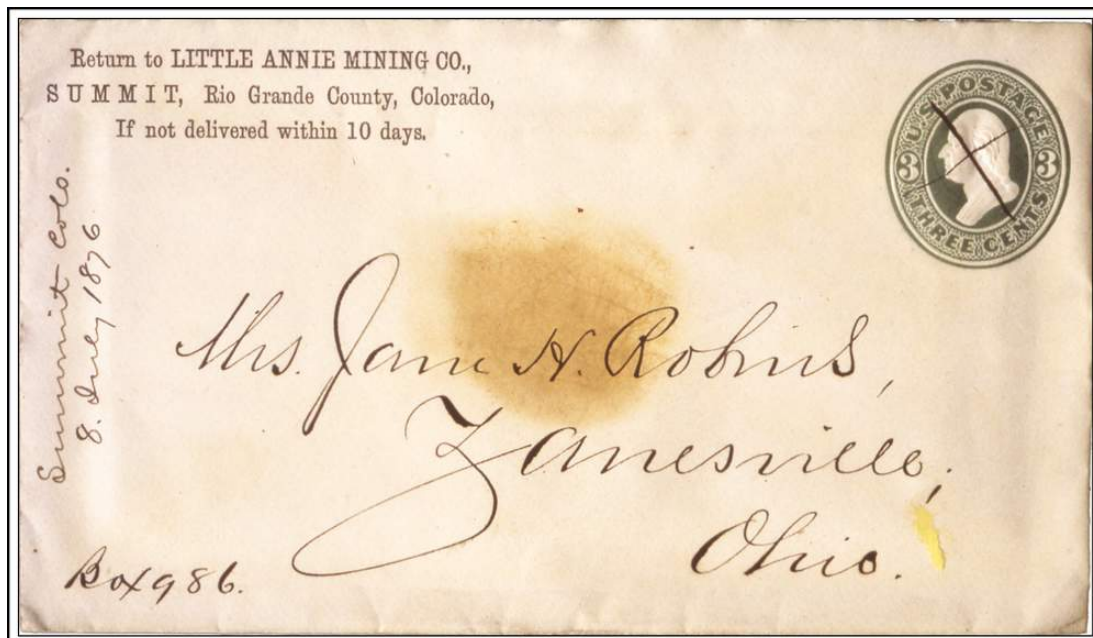 Return to LITTLE ANNIE MINING CO.,
SUMMIT, Rio Grande County, Colorado,
If not delivered within 10 days.
U.S. POSTAGE
3 3
THREE CENTS
Summit Colo.
8. July 1876
Mrs. Jane H. Robins,
Zanesville,
Ohio.
Box 986.